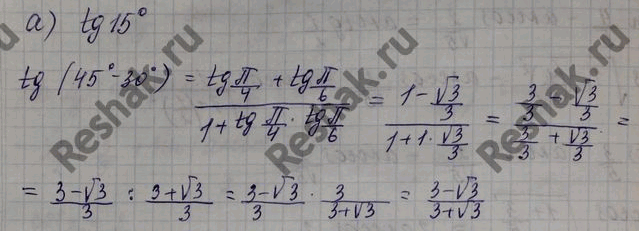 а) tg 15°
tg (45° - 30°) = (tg π/4 + tg π/6) / (1 + tg π/4 · tg π/6) = (1 - √3/3) / (1 + 1 · √3/3) = (3/3 - √3/3) / (3/3 + √3/3) =
= (3 - √3)/3 : (3 + √3)/3 = (3 - √3)/3 · 3/(3 + √3) = (3 - √3)/(3 + √3)
Reshak.ru
Reshak.ru
Reshak.ru